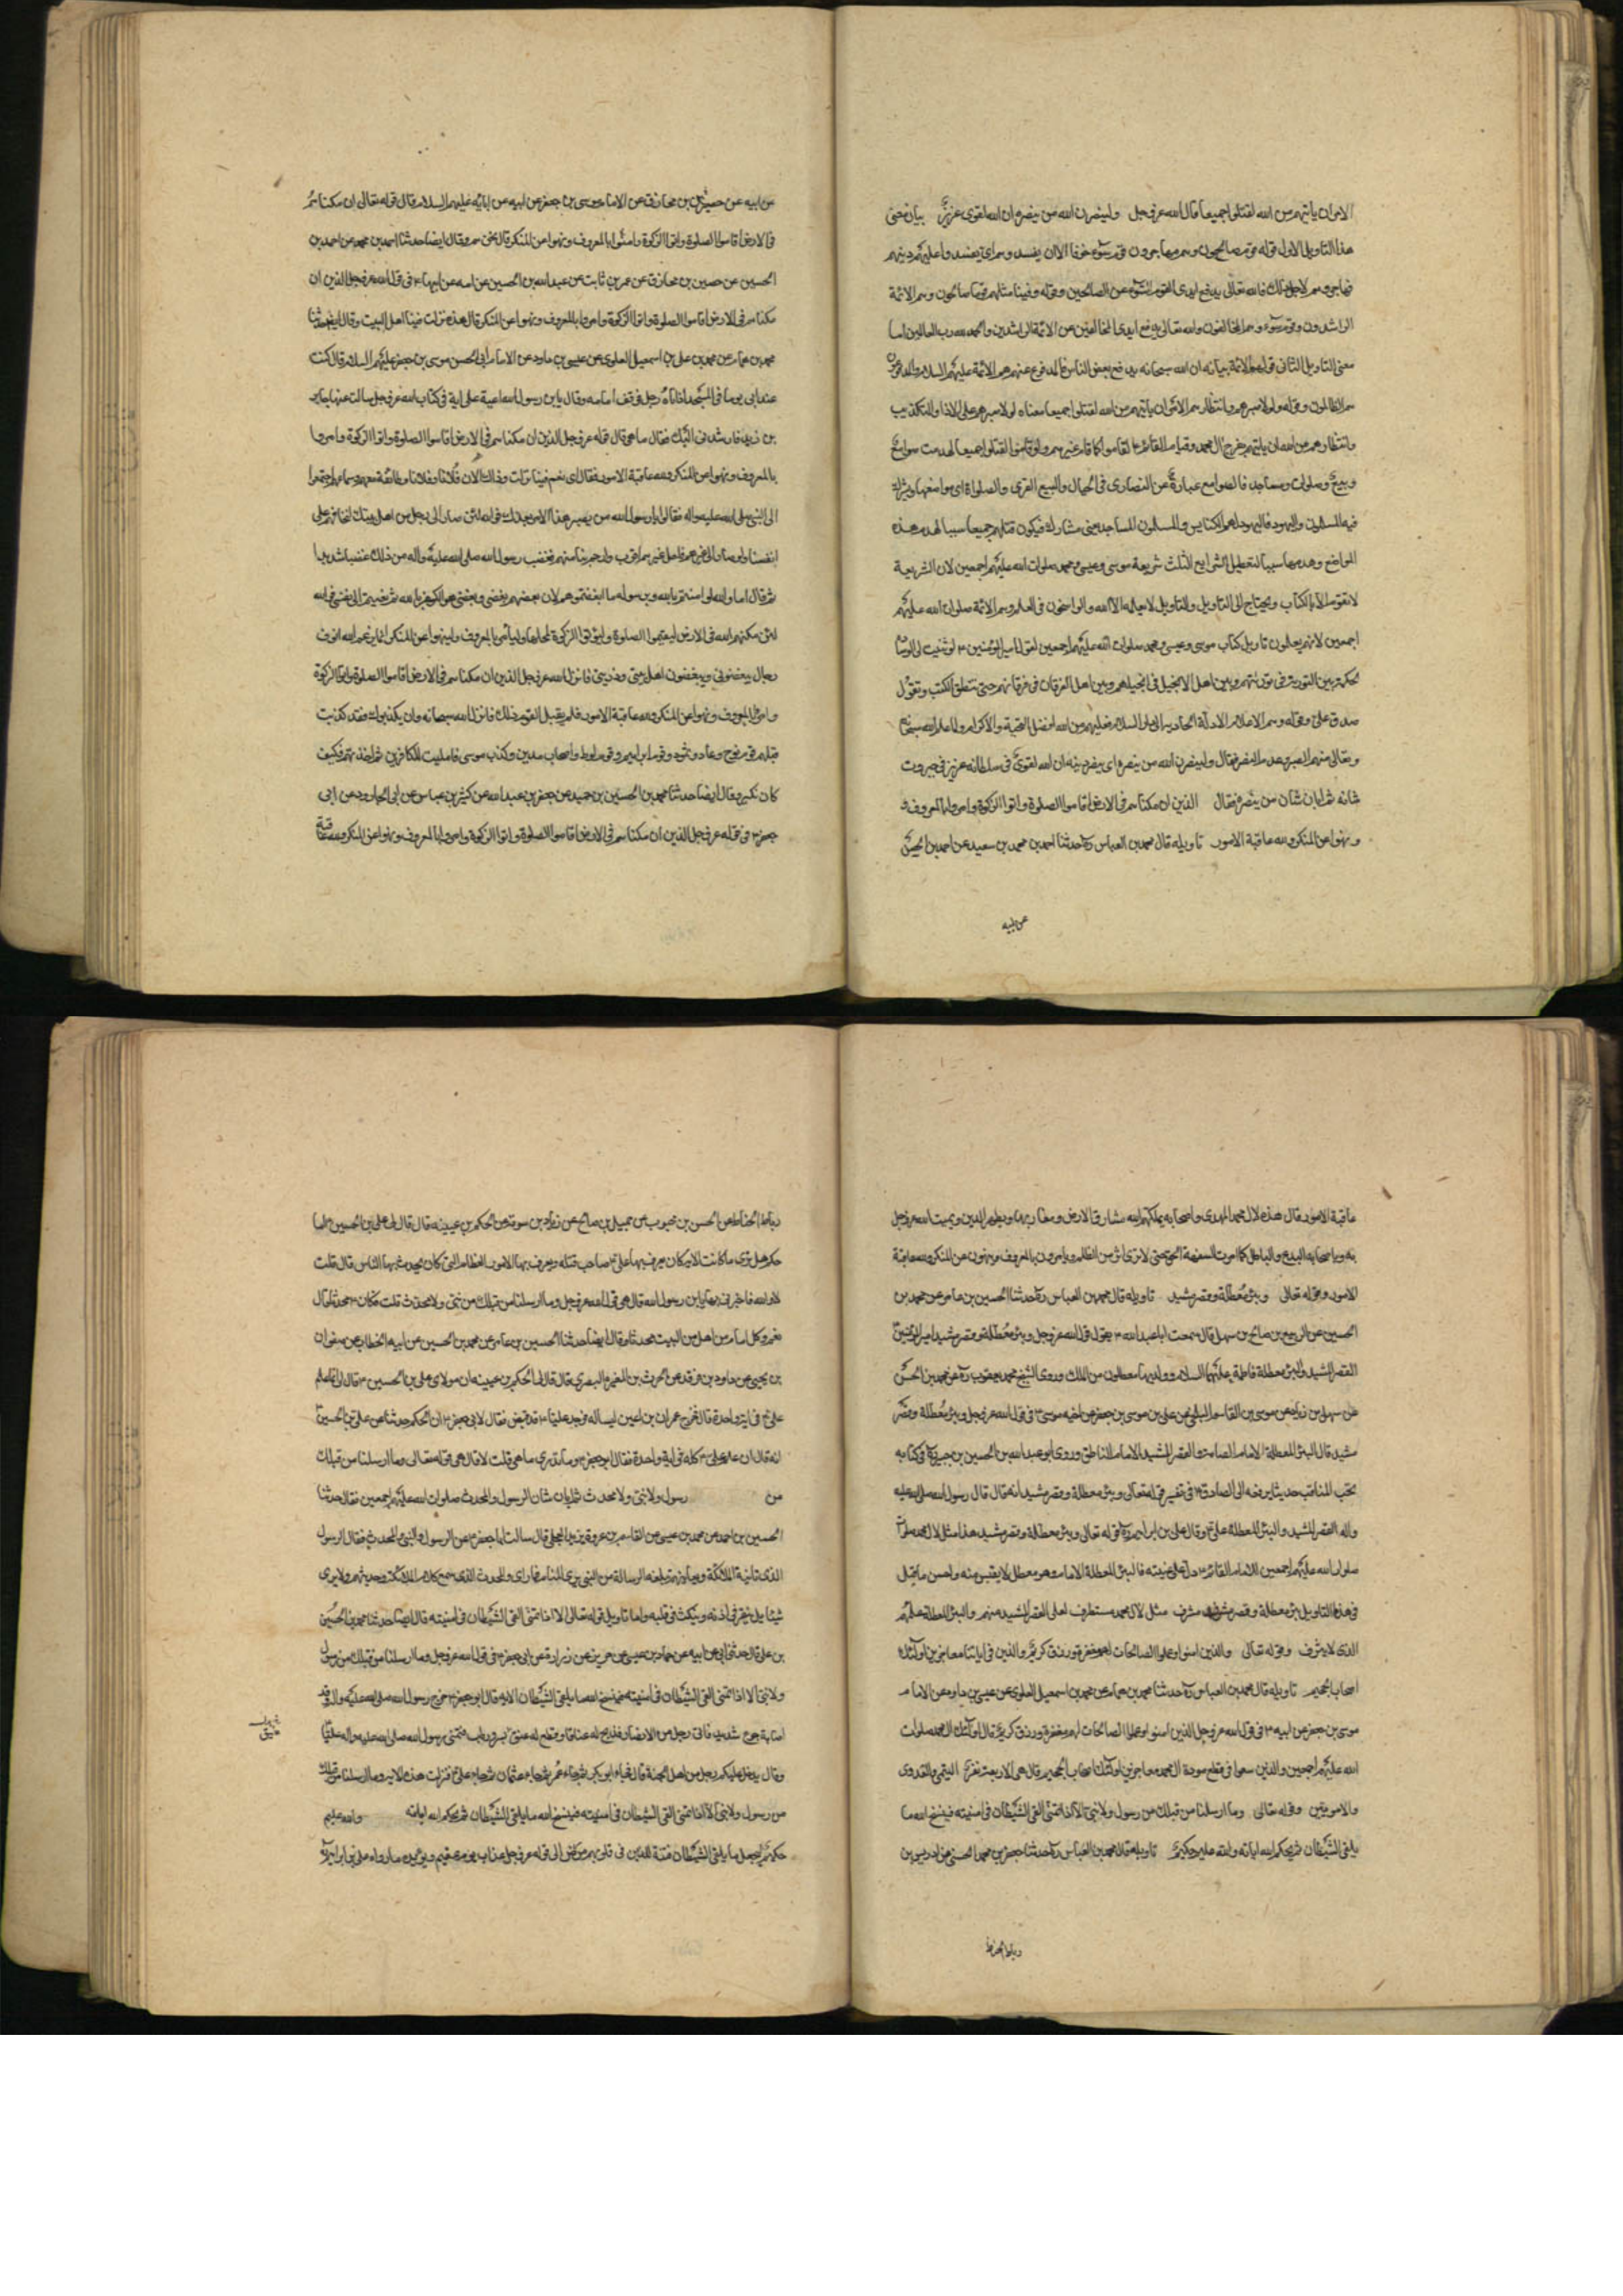 الاموان ياتيهم من الله لقتلوا جميعا قال الله عز وجل ولينصرن الله من ينصره ان الله لقوى عزيز بيان معنى
هذا التاويل الاول قوله قوم صالحون وهم مهاجرون قوم سوء خوفا الا ان يفسد وهم اى يفسدوا عليهم دينهم
فهاجروهم لاجل ذلك فالله تعالى يدفع ايدى القوم السوء عن الصالحين وقوله وفينا مثلهم قوما صالحون وهم الائمة
الراشدون وقوم سوء وهم المخالفون والله تعالى يدفع ايدى المخالفين عن الائمة الراشدين والحمد لله رب العالمين اما
معنى التاويل الثانى قوله هم الائمة بيانه ان الله سبحانه يدفع بعض الناس فالمدفوع عنهم هم الائمة عليهم السلام والمدفوعون
هم الظالمون وقوله ولولا صبرهم وانتظارهم الامر ان ياتيهم من الله لقتلوا جميعا معناه لولا صبرهم على الاذا والتكذيب
وانتظارهم من الله ان ياتيهم بفرج ال محمد وقيام القائم ع لقاموا كما قام غيرهم ولو قاموا لقتلوا جميعا لهدمت صوامع
وبيع وصلوات ومساجد فالصوامع عبارة عن النصارى فى الجبال والبيع القرى والصلوات اى مواضعها ويشترك
فيه المسلمون واليهود فاليهود لهم الكنايس والمسلمون المساجد بغير مشارك فيكون قتلهم جميعا سببا لهدم هذه
المواضع وهدمها سببا لتعطيل الشرايع الثلث شريعة موسى وعيسى ومحمد صلوات الله عليهم اجمعين لان الشريعة
لا تقوم الا بالكتاب ويحتاج الى التاويل والتاويل لا يعلمه الا الله والراسخون فى العلم وهم الائمة صلوات الله عليهم
اجمعين لانهم يعلمون تاويل كتاب موسى وعيسى ومحمد صلوات الله عليهم اجمعين لقول امير المؤمنين ع لو ثنيت لى الوسادة
لحكمت بين التورية فى توريتهم وبين اهل الانجيل فى انجيلهم وبين اهل الفرقان فى فرقانهم حتى تنطق الكتب وتقول
صدق على وقوله وهم الاعلام الادلة الهادية الى دار السلام فعليهم من الله افضل التحية والاكرام ولما علم الله سبحانه
وتعالى منهم الصبر وعدهم النصر فقال ولينصرن الله من ينصره اى ينصر دينه ان الله لقوى فى سلطانه عزيز فى جبروت
شانه ثم ابان شان من ينصره فقال الذين ان مكناهم فى الارض اقاموا الصلوة واتوا الزكوة وامروا بالمعروف و
ونهوا عن المنكر ولله عاقبة الامور تاويله قال محمد بن العباس ره حدثنا احمد بن محمد بن سعيد عن احمد بن الحسين
عن ابيه
عن ابيه عن حصين بن مخارق عن الامام موسى بن جعفر عن ابيه عن ابائه عليهم السلام قال قوله تعالى ان مكناهم
فى الارض اقاموا الصلوة واتوا الزكوة وامروا بالمعروف ونهوا عن المنكر قال نحن هم وقال ايضا حدثنا احمد بن محمد عن احمد بن
الحسين عن حصين بن مخارق عن عمر بن ثابت عن عبد الله بن الحسين عن امه عن ابيها ع فى قول الله عز وجل الذين ان
مكناهم فى الارض اقاموا الصلوة واتوا الزكوة وامروا بالمعروف ونهوا عن المنكر قال هذه نزلت فينا اهل البيت وقال ايضا حدثنا
محمد بن همام عن محمد بن على بن اسمعيل العلوى عن عيسى بن داود عن الامام ابى الحسن موسى بن جعفر عليهم السلام قال كنت
عند ابى يوما فى المسجد اذ اتاه رجل فوقف امامه وقال يابن رسول الله اعيت على اية فى كتاب الله عز وجل سالت عنها جابر
بن زيد فارشدنى اليك فقال ما هى قال قوله عز وجل الذين ان مكناهم فى الارض اقاموا الصلوة واتوا الزكوة وامروا
بالمعروف ونهوا عن المنكر ولله عاقبة الامور فقال ابى نعم فينا نزلت وذلك لان فلانا وفلانا وطائفة معهم وسماهم اجتمعوا
الى النبى صلى الله عليه واله فقالوا يا رسول الله من يصير هذا الامر بعدك فوالله لئن صار الى رجل من اهل بيتك انا نخافهم على
انفسنا ولو صار الى غيرهم فلعل غيرهم اقرب وارحم بنا منهم فغضب رسول الله صلى الله عليه واله من ذلك غضبا شديدا
ثم قال اما والله لو امنتم بالله وبرسوله ما ابغضتموهم لان بغضهم بغضى وبغضى هو الكفر بالله ثم نعيتم الى نفسى فوالله
لئن مكنهم الله فى الارض ليقيموا الصلوة وليؤتوا الزكوة لمحلها وليامرن بالمعروف ولينهوا عن المنكر انما يرغم الله انوف
رجال يبغضونى ويبغضون اهل بيتى وذريتى فانزل الله عز وجل الذين ان مكناهم فى الارض اقاموا الصلوة واتوا الزكوة
وامروا بالمعروف ونهوا عن المنكر ولله عاقبة الامور فلم يقبل القوم ذلك فانزل الله سبحانه وان يكذبوك فقد كذبت
قبلهم قوم نوح وعاد وثمود وقوم ابراهيم وقوم لوط واصحاب مدين وكذب موسى فامليت للكافرين ثم اخذتهم فكيف
كان نكير وقال ايضا حدثنا محمد بن الحسين بن حميد عن جعفر بن عبد الله عن كثير بن عياش عن ابى الجارود عن ابى
جعفر ع فى قوله عز وجل الذين ان مكناهم فى الارض اقاموا الصلوة واتوا الزكوة وامروا بالمعروف ونهوا عن المنكر ولله عاقبة
عاقبة الامور قال هذه لال محمد المهدى واصحابه يملكهم الله مشارق الارض ومغاربها ويظهر الدين ويميت الله عز وجل
به وباصحابه البدع والباطل كما امات السفهة الحق حتى لا يرى اثر من الظلم ويامرون بالمعروف وينهون عن المنكر ولله عاقبة
الامور وقوله تعالى وبئر معطلة وقصر مشيد تاويله قال محمد بن العباس ره حدثنا الحسين بن عامر عن محمد بن
الحسين عن الربيع بن صالح بن سهل قال سمعت ابا عبد الله ع يقول قول الله عز وجل وبئر معطلة وقصر مشيد امير المؤمنين
القصر المشيد والبئر معطلة فاطمة عليهما السلام وولديها معطلون من الملك وروى الشيخ محمد بن يعقوب ره عن محمد بن الحسن
عن سهل بن زياد عن موسى بن القاسم البجلى عن على بن موسى بن جعفر عن اخيه موسى ع فى قول الله عز وجل وبئر معطلة وقصر
مشيد قال البئر المعطلة الامام الصامت والقصر المشيد الامام الناطق وروى ابو عبد الله بن الحسين بن جبير ره فى كتابه
نخب المناقب حديثا يرفعه الى الصادق ع فى تفسير قوله تعالى وبئر معطلة وقصر مشيد انه قال قال رسول الله صلى الله عليه
واله القصر المشيد والبئر المعطلة على ع وقال على بن ابراهيم ره قوله تعالى وبئر معطلة وقصر مشيد هذا مثل لال محمد صلوات
صلوات الله عليهم اجمعين للامام القائم ع حال غيبته فالبئر المعطلة الامام وهو معطل لا يقتبس منه واحسن ما قيل
فى هذا التاويل بئر معطلة وقصر مشرف مثل لال محمد مستطرف لعلى القصر المشيد منهم والبئر المعطلة علمهم
الذى لا ينزف وقوله تعالى والذين امنوا وعملوا الصالحات لهم مغفرة ورزق كريم والذين فى اياتنا معاجزين اولئك
اصحاب الجحيم تاويله قال محمد بن العباس ره حدثنا محمد بن همام عن محمد بن اسمعيل العلوى عن عيسى بن داود عن الامام
موسى بن جعفر عن ابيه ع فى قول الله عز وجل الذين امنوا وعملوا الصالحات لهم مغفرة ورزق كريم قال اولئك ال محمد صلوات
الله عليهم اجمعين والذين سعوا فى قطع مودة ال محمد معاجزين اولئك اصحاب الجحيم قال هى الاربعة نفر التيمى والعدوى
والامويين وقوله تعالى وما ارسلنا من قبلك من رسول ولا نبى الا اذا تمنى القى الشيطان فى امنيته فينسخ الله ما
يلقى الشيطان ثم يحكم الله اياته والله عليم حكيم تاويله قال محمد بن العباس ره حدثنا جعفر بن محمد الحسنى عن ادريس بن
رباط الحناط
رباط الحناط عن الحسن بن محبوب عن جميل بن صالح عن زياد بن سوقة عن الحكم بن عيينه قال قال لى على بن الحسين ع يا
حكم هل تدرى ما كانت الاية كان يعرف بها على ع صاحب قتله ويعرف بها الامور العظام التى كان يحدث بها الناس قال قلت
لا والله فاخبرنى بها يابن رسول الله قال هى قول الله عز وجل وما ارسلنا من قبلك من نبى ولا محدث قلت فكان ع محدثا قال
نعم وكل امام من اهل البيت محدث وقال ايضا حدثنا الحسين بن عامر عن محمد بن الحسين عن ابيه الخطاب عن صفوان
بن يحيى عن داود بن فرقد عن الحرث بن المغيرة البصرى قال قال لى الحكم بن عيينه ان مولاى على بن الحسين ع قال لى انما علم
على ع فى اية واحدة قال فخرج حمران بن اعين ليساله فوجد عليا ع قد قبض فقال لابى جعفر ع ان الحكم حدثنا عن على بن الحسين
انه قال ان علم على ع كله فى اية واحدة فقال ابو جعفر ع وما تدرى ما هى قلت لا قال هى قوله تعالى وما ارسلنا من قبلك
من رسول ولا نبى ولا محدث ثم ابان شان الرسول والمحدث صلوات الله عليهم اجمعين فقال حدثنا
الحسين بن احمد عن محمد بن عيسى عن القاسم بن عروة عن بريد العجلى قال سالت ابا جعفر ع عن الرسول والنبى والمحدث فقال الرسول
الذى تاتيه الملائكة ويعاينهم تبلغه الرسالة من الله والنبى يرى فى المنام فما راى والمحدث الذى يسمع كلام الملائكة وحديثهم ولا يرى
شيئا بل ينقر فى اذنه وينكث فى قلبه واما تاويل قوله تعالى الا اذا تمنى القى الشيطان فى امنيته قال ايضا حدثنا محمد بن الحسين
بن على قال حدثنى ابى عن ابيه عن حماد بن عيسى عن حريز عن زرارة عن ابى جعفر ع فى قول الله عز وجل وما ارسلنا من قبلك من رسول
ولا نبى الا اذا تمنى القى الشيطان فى امنيته فينسخ الله ما يلقى الشيطان الاية قال ابو جعفر ع خرج رسول الله صلى الله عليه واله وقد
اصابه جوع شديد فاتى رجل من الانصار فذبح له عناقا وقطع له عذق بسر ورطب فتمنى رسول الله صلى الله عليه واله عليا
وقال يدخل عليكم رجل من اهل الجنة قال فجاء ابو بكر ثم جاء عمر ثم جاء عثمان ثم جاء على ع فنزلت هذه الاية وما ارسلنا من قبلك
من رسول ولا نبى الا اذا تمنى القى الشيطان فى امنيته فينسخ الله ما يلقى الشيطان ثم يحكم الله اياته والله عليم
حكيم ليجعل ما يلقى الشيطان فتنة للذين فى قلوبهم مرض الى قوله عز وجل عذاب يوم عقيم ويؤيده ما رواه على بن ابراهيم ره